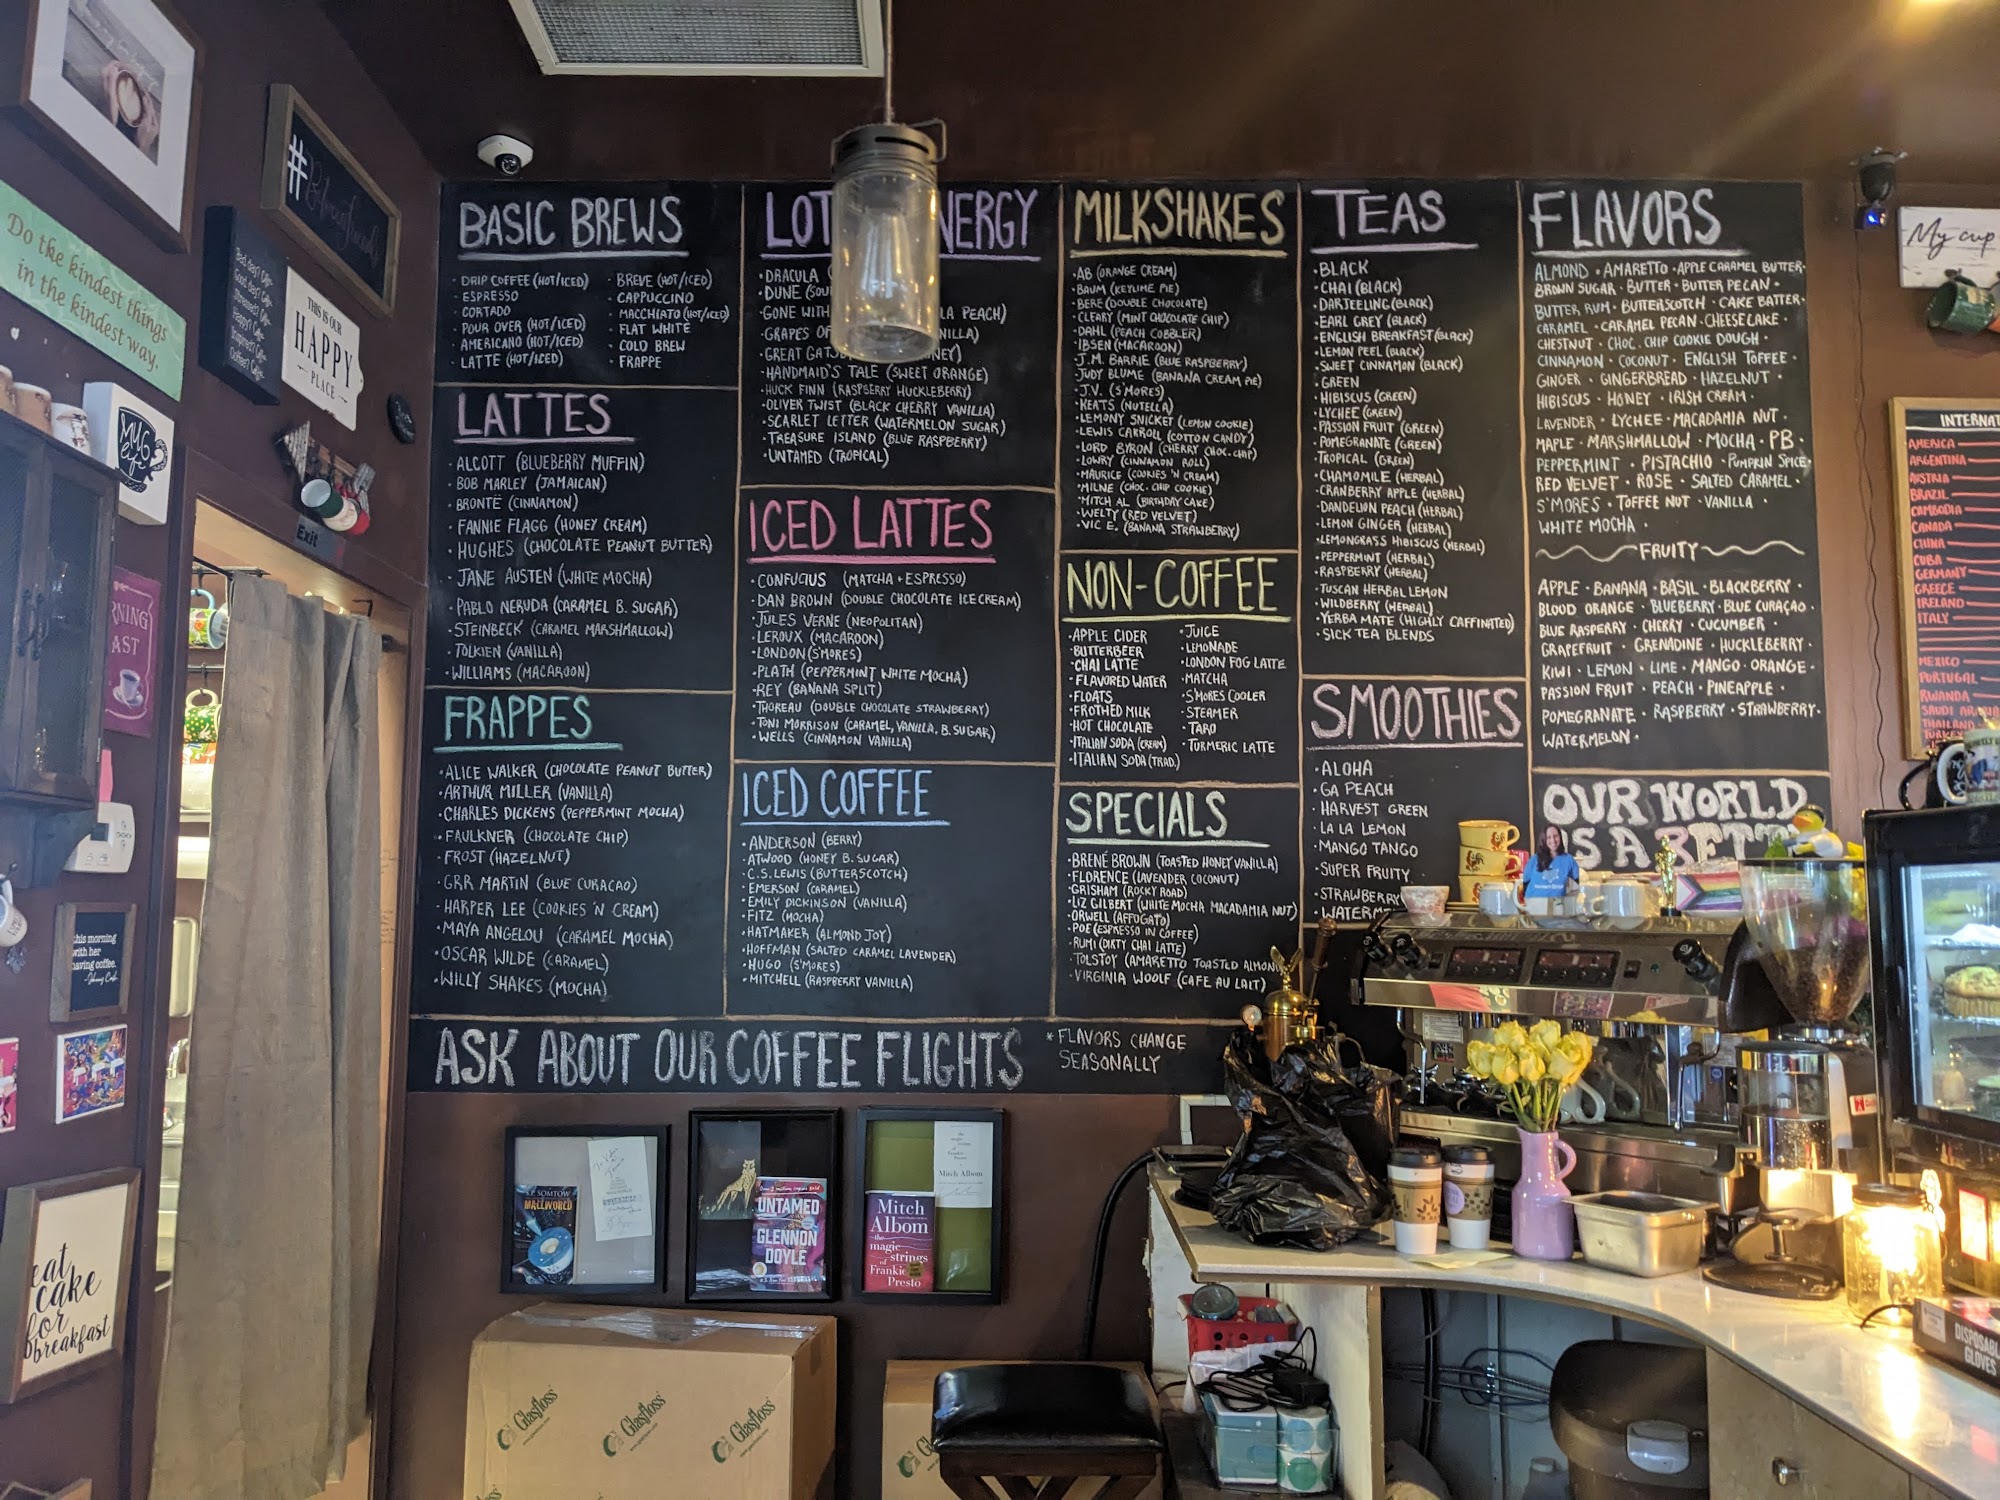 Do the kindest things
in the kindest way.
#
THIS IS OUR
HAPPY
PLACE
MUG
life
Exit
this morning
with her
having coffee.
eat
cake
for
breakfast
BASIC BREWS
• DRIP COFFEE (HOT/ICED)
• ESPRESSO
• CORTADO
• POUR OVER (HOT/ICED)
• AMERICANO (HOT/ICED)
• LATTE (HOT/ICED)
• BREVE (HOT/ICED)
• CAPPUCCINO
• MACCHIATO (HOT/ICED)
• FLAT WHITE
• COLD BREW
• FRAPPE
LATTES
• ALCOTT (BLUEBERRY MUFFIN)
• BOB MARLEY (JAMAICAN)
• BRONTË (CINNAMON)
• FANNIE FLAGG (HONEY CREAM)
• HUGHES (CHOCOLATE PEANUT BUTTER)
• JANE AUSTEN (WHITE MOCHA)
• PABLO NERUDA (CARAMEL B. SUGAR)
• STEINBECK (CARAMEL MARSHMALLOW)
• TOLKIEN (VANILLA)
• WILLIAMS (MACAROON)
FRAPPES
• ALICE WALKER (CHOCOLATE PEANUT BUTTER)
• ARTHUR MILLER (VANILLA)
• CHARLES DICKENS (PEPPERMINT MOCHA)
• FAULKNER (CHOCOLATE CHIP)
• FROST (HAZELNUT)
• GRR MARTIN (BLUE CURACAO)
• HARPER LEE (COOKIES 'N CREAM)
• MAYA ANGELOU (CARAMEL MOCHA)
• OSCAR WILDE (CARAMEL)
• WILLY SHAKES (MOCHA)
LOT NERGY
• DRACULA
• DUNE (SOU
• GONE WITH LA PEACH)
• GRAPES OF NILLA)
• GREAT GATSB NEY)
• HANDMAID'S TALE (SWEET ORANGE)
• HUCK FINN (RASPBERRY HUCKLEBERRY)
• OLIVER TWIST (BLACK CHERRY VANILLA)
• SCARLET LETTER (WATERMELON SUGAR)
• TREASURE ISLAND (BLUE RASPBERRY)
• UNTAMED (TROPICAL)
ICED LATTES
• CONFUCIUS (MATCHA + ESPRESSO)
• DAN BROWN (DOUBLE CHOCOLATE ICE CREAM)
• JULES VERNE (NEOPOLITAN)
• LEROUX (MACAROON)
• LONDON (S'MORES)
• PLATH (PEPPERMINT WHITE MOCHA)
• REY (BANANA SPLIT)
• THOREAU (DOUBLE CHOCOLATE STRAWBERRY)
• TONI MORRISON (CARAMEL, VANILLA, B. SUGAR)
• WELLS (CINNAMON VANILLA)
ICED COFFEE
• ANDERSON (BERRY)
• ATWOOD (HONEY B. SUGAR)
• C.S. LEWIS (BUTTERSCOTCH)
• EMERSON (CARAMEL)
• EMILY DICKINSON (VANILLA)
• FITZ (MOCHA)
• HATMAKER (ALMOND JOY)
• HOFFMAN (SALTED CARAMEL LAVENDER)
• HUGO (S'MORES)
• MITCHELL (RASPBERRY VANILLA)
MILKSHAKES
• AB (ORANGE CREAM)
• BAUM (KEYLIME PIE)
• BERE (DOUBLE CHOCOLATE)
• CLEARY (MINT CHOCOLATE CHIP)
• DAHL (PEACH COBBLER)
• IBSEN (MACAROON)
• J.M. BARRIE (BLUE RASPBERRY)
• JUDY BLUME (BANANA CREAM PIE)
• J.V. (S'MORES)
• KEATS (NUTELLA)
• LEMONY SNICKET (LEMON COOKIE)
• LEWIS CARROLL (COTTON CANDY)
• LORD BYRON (CHERRY CHOC. CHIP)
• LOWRY (CINNAMON ROLL)
• MAURICE (COOKIES 'N CREAM)
• MILNE (CHOC. CHIP COOKIE)
• MITCH AL. (BIRTHDAY CAKE)
• WELTY (RED VELVET)
• VIC E. (BANANA STRAWBERRY)
NON-COFFEE
• APPLE CIDER
• BUTTERBEER
• CHAI LATTE
• FLAVORED WATER
• FLOATS
• FROTHED MILK
• HOT CHOCOLATE
• ITALIAN SODA (CREAM)
• ITALIAN SODA (TRAD.)
• JUICE
• LEMONADE
• LONDON FOG LATTE
• MATCHA
• S'MORES COOLER
• STEAMER
• TARO
• TURMERIC LATTE
SPECIALS
• BRENÉ BROWN (TOASTED HONEY VANILLA)
• FLORENCE (LAVENDER COCONUT)
• GRISHAM (ROCKY ROAD)
• LIZ GILBERT (WHITE MOCHA MACADAMIA NUT)
• ORWELL (AFFOGATO)
• POE (ESPRESSO IN COFFEE)
• RUMI (DIRTY CHAI LATTE)
• TOLSTOY (AMARETTO TOASTED ALMOND
• VIRGINIA WOOLF (CAFE AU LAIT)
TEAS
• BLACK
• CHAI (BLACK)
• DARJEELING (BLACK)
• EARL GREY (BLACK)
• ENGLISH BREAKFAST (BLACK)
• LEMON PEEL (BLACK)
• SWEET CINNAMON (BLACK)
• GREEN
• HIBISCUS (GREEN)
• LYCHEE (GREEN)
• PASSION FRUIT (GREEN)
• POMEGRANATE (GREEN)
• TROPICAL (GREEN)
• CHAMOMILE (HERBAL)
• CRANBERRY APPLE (HERBAL)
• DANDELION PEACH (HERBAL)
• LEMON GINGER (HERBAL)
• LEMONGRASS HIBISCUS (HERBAL)
• PEPPERMINT (HERBAL)
• RASPBERRY (HERBAL)
• TUSCAN HERBAL LEMON
• WILDBERRY (HERBAL)
• YERBA MATE (HIGHLY CAFFINATED)
• SICK TEA BLENDS
SMOOTHIES
• ALOHA
• GA PEACH
• HARVEST GREEN
• LA LA LEMON
• MANGO TANGO
• SUPER FRUITY
• STRAWBERRY
• WATERM
FLAVORS
ALMOND • AMARETTO • APPLE CARAMEL BUTTER •
BROWN SUGAR • BUTTER • BUTTER PECAN •
BUTTER RUM • BUTTERSCOTCH • CAKE BATTER •
CARAMEL • CARAMEL PECAN • CHEESECAKE •
CHESTNUT • CHOC. CHIP COOKIE DOUGH •
CINNAMON • COCONUT • ENGLISH TOFFEE •
GINGER • GINGERBREAD • HAZELNUT •
HIBISCUS • HONEY • IRISH CREAM •
LAVENDER • LYCHEE • MACADAMIA NUT •
MAPLE • MARSHMALLOW • MOCHA • PB •
PEPPERMINT • PISTACHIO • PUMPKIN SPICE •
RED VELVET • ROSE • SALTED CARAMEL •
S'MORES • TOFFEE NUT • VANILLA •
WHITE MOCHA •
FRUITY
APPLE • BANANA • BASIL • BLACKBERRY •
BLOOD ORANGE • BLUEBERRY • BLUE CURAÇAO •
BLUE RASPERRY • CHERRY • CUCUMBER •
GRAPEFRUIT • GRENADINE • HUCKLEBERRY •
KIWI • LEMON • LIME • MANGO • ORANGE •
PASSION FRUIT • PEACH • PINEAPPLE •
POMEGRANATE • RASPBERRY • STRAWBERRY •
WATERMELON •
OUR WORLD
IS A BETT
ASK ABOUT OUR COFFEE FLIGHTS
* FLAVORS CHANGE
SEASONALLY
My cup
INTERNAT
AMERICA
ARGENTINA
AUSTRIA
BRAZIL
CAMBODIA
CANADA
CHINA
CUBA
GERMANY
GREECE
IRELAND
ITALY
MEXICO
PORTUGAL
RWANDA
SAUDI ARABIA
THAILAND
TURKEY
S.P. SOMTOW
MALLWORLD
UNTAMED
GLENNON
DOYLE
Mitch Albom
Mitch
Albom
the
magic
strings
of
Frankie
Presto
Glasfloss
Glasfloss
Glasfloss
DISPOSABL
GLOVES